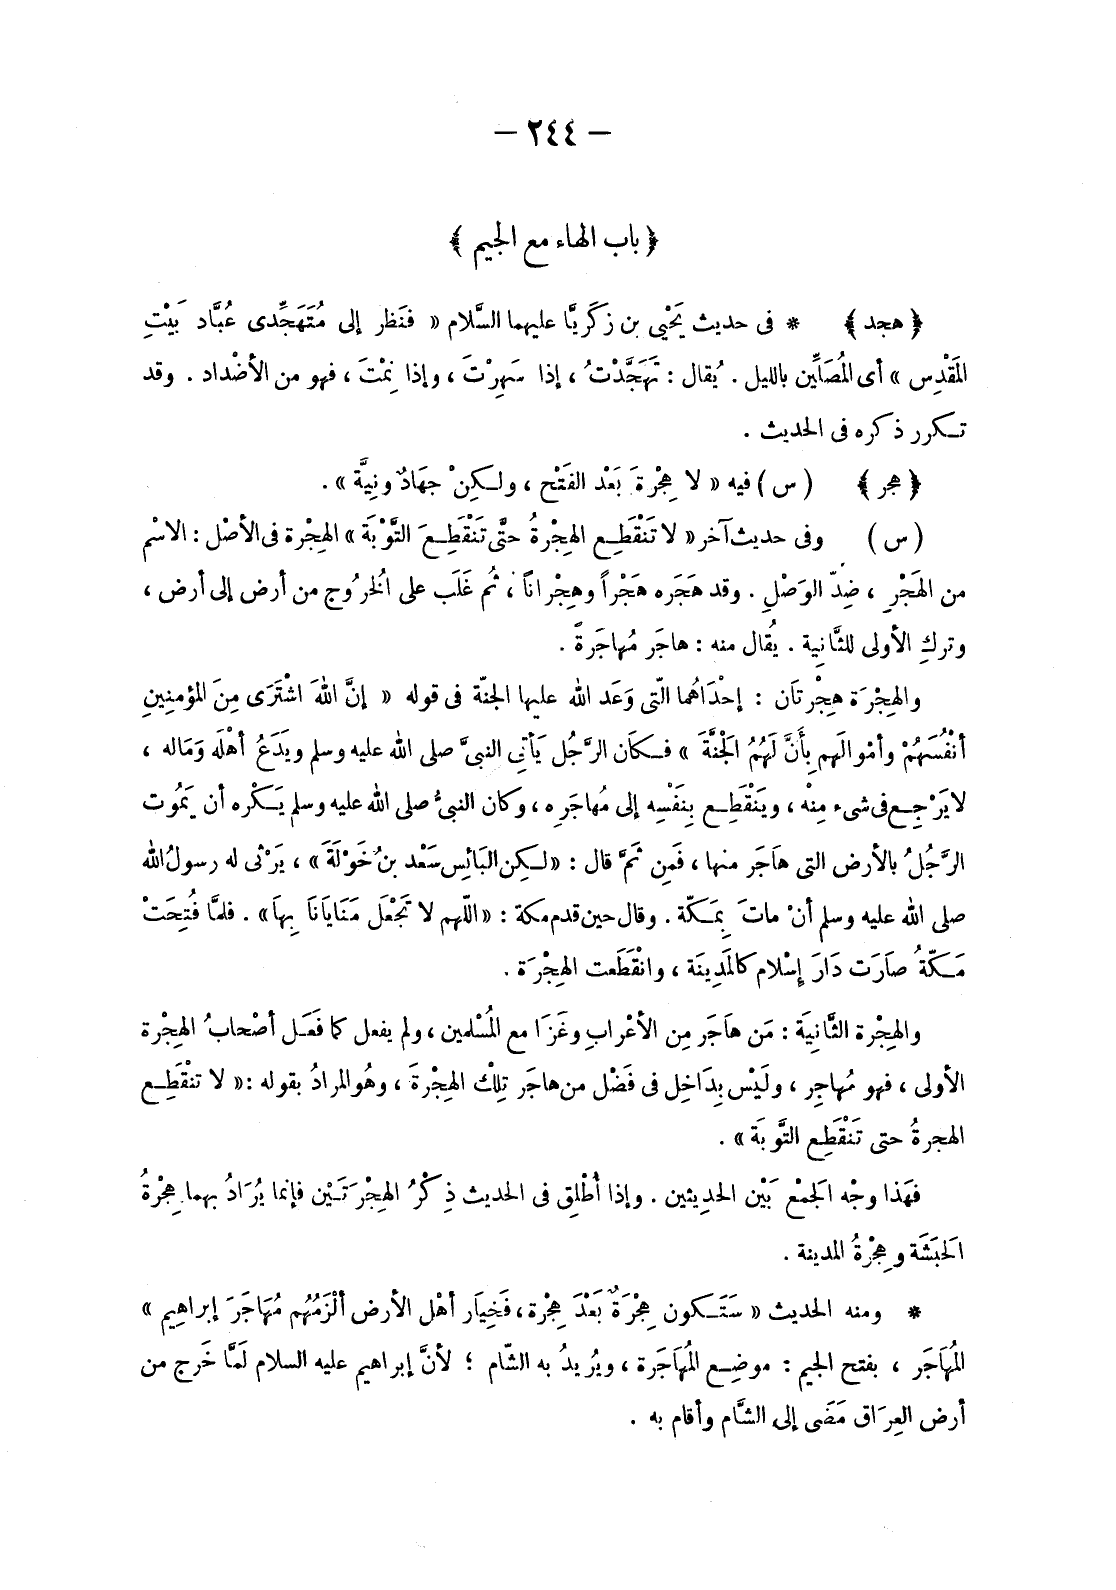 — ٢٤٤ —
﴿ باب الهاء مع الجيم ﴾
﴿ هجد ﴾ * فى حديث يَحْيٰى بن زكَرِيَّا عليهما السَّلام « فَنَظر إلى مُتَهَجِّدى عُبَّاد بَيْتِ
المَقْدِس » أى المُصَلِّين بالليل . يُقال : تَهَجَّدْتُ ، إذا سَهِرْتَ ، وإذا نِمْتَ ، فهو من الأضْداد . وقد
تكرر ذكره فى الحديث .
﴿ هجر ﴾ ( س ) فيه « لا هِجْرَةَ بَعْد الفَتْح ، ولكِنْ جِهَادٌ ونِيَّة » .
( س ) وفى حديث آخر « لا تَنْقَطِع الهِجْرةُ حتَّى تَنْقَطِعَ التَّوْبَة » الهِجْرة فى الأصْل : الاسْم
من الهَجْرِ ، ضِدّ الوَصْلِ . وقد هَجَره هَجْراً وهِجْراناً ، ثُم غَلَب على الْخُروُج من أرض إلى أرض ،
وتركِ الأولى للثَّانِية . يُقال منه : هاجَر مُهاجَرةً .
والهِجْرَة هِجْرتَان : إحْدَاهُما الَّتى وَعَد الله عليها الجنّة فى قوله « إنَّ اللهَ اشْتَرَى مِنَ المؤمنِينِ
أنْفُسَهُمْ وأمْوالَهم بِأَنَّ لَهُمُ الْجنَّةَ » فكَان الرَّجُل يَأتِى النبىَّ صلى الله عليه وسلم ويَدَعُ أهْلَه وَمَاله ،
لا يَرْجِع فى شىء مِنْه ، ويَنْقَطِع بِنَفْسِه إلى مُهاجَرِه ، وكان النبىُّ صلى الله عليه وسلم يَكْره أن يَمُوت
الرَّجُلُ بالأرض التى هَاجَر منها ، فَمِن ثَمَّ قال : « لكِن البَائِس سَعْد بنُ خَوْلَةَ » ، يَرْثى له رسولُ الله
صلى الله عليه وسلم أنْ ماتَ بِمَكّة . وقال حين قدم مكة : « اللّهم لا تَجْعَل مَنَايَانَا بِهَا » . فلمَّا فُتِحَتْ
مَكّةُ صَارَت دَارَ إسْلام كالمَدِينَة ، وانْقَطَعت الهِجْرَة .
والهِجْرة الثَّانِيَة : مَن هَاجَر مِن الأعْرابِ وغَزَا مع المُسْلمين ، ولم يفعل كما فَعَل أصْحابُ الهِجْرة
الأولى ، فهو مُهاجِر ، ولَيْس بِدَاخِل فى فَضْل من هاجَر تِلْك الهِجْرةَ ، وهُو المرادُ بقوله : « لا تنْقَطِع
الهجرةُ حتى تَنْقَطِع التَّوبَة » .
فهَذا وجْه الجَمْع بَيْن الحدِيثين . وإذا أُطْلِق فى الحديث ذِكْرُ الهِجْرَتَيْن فإنما يُرَادُ بهما هِجْرةُ
الحَبَشَة وهِجْرةُ المدينة .
* ومنه الحديث « سَتَكون هِجْرَةٌ بَعْدَ هِجْرة ، فَخِيَار أهْل الأرض ألْزَمُهُم مُهَاجَرَ إبراهِيم »
المُهَاجَر ، بفتح الجيم : موضِع المُهَاجَرة ، ويُريدُ به الشّام ؛ لأنَّ إبراهيم عليه السلام لَمَّا خَرج من
أرض العِرَاق مَضَى إلى الشَّام وأقام به .